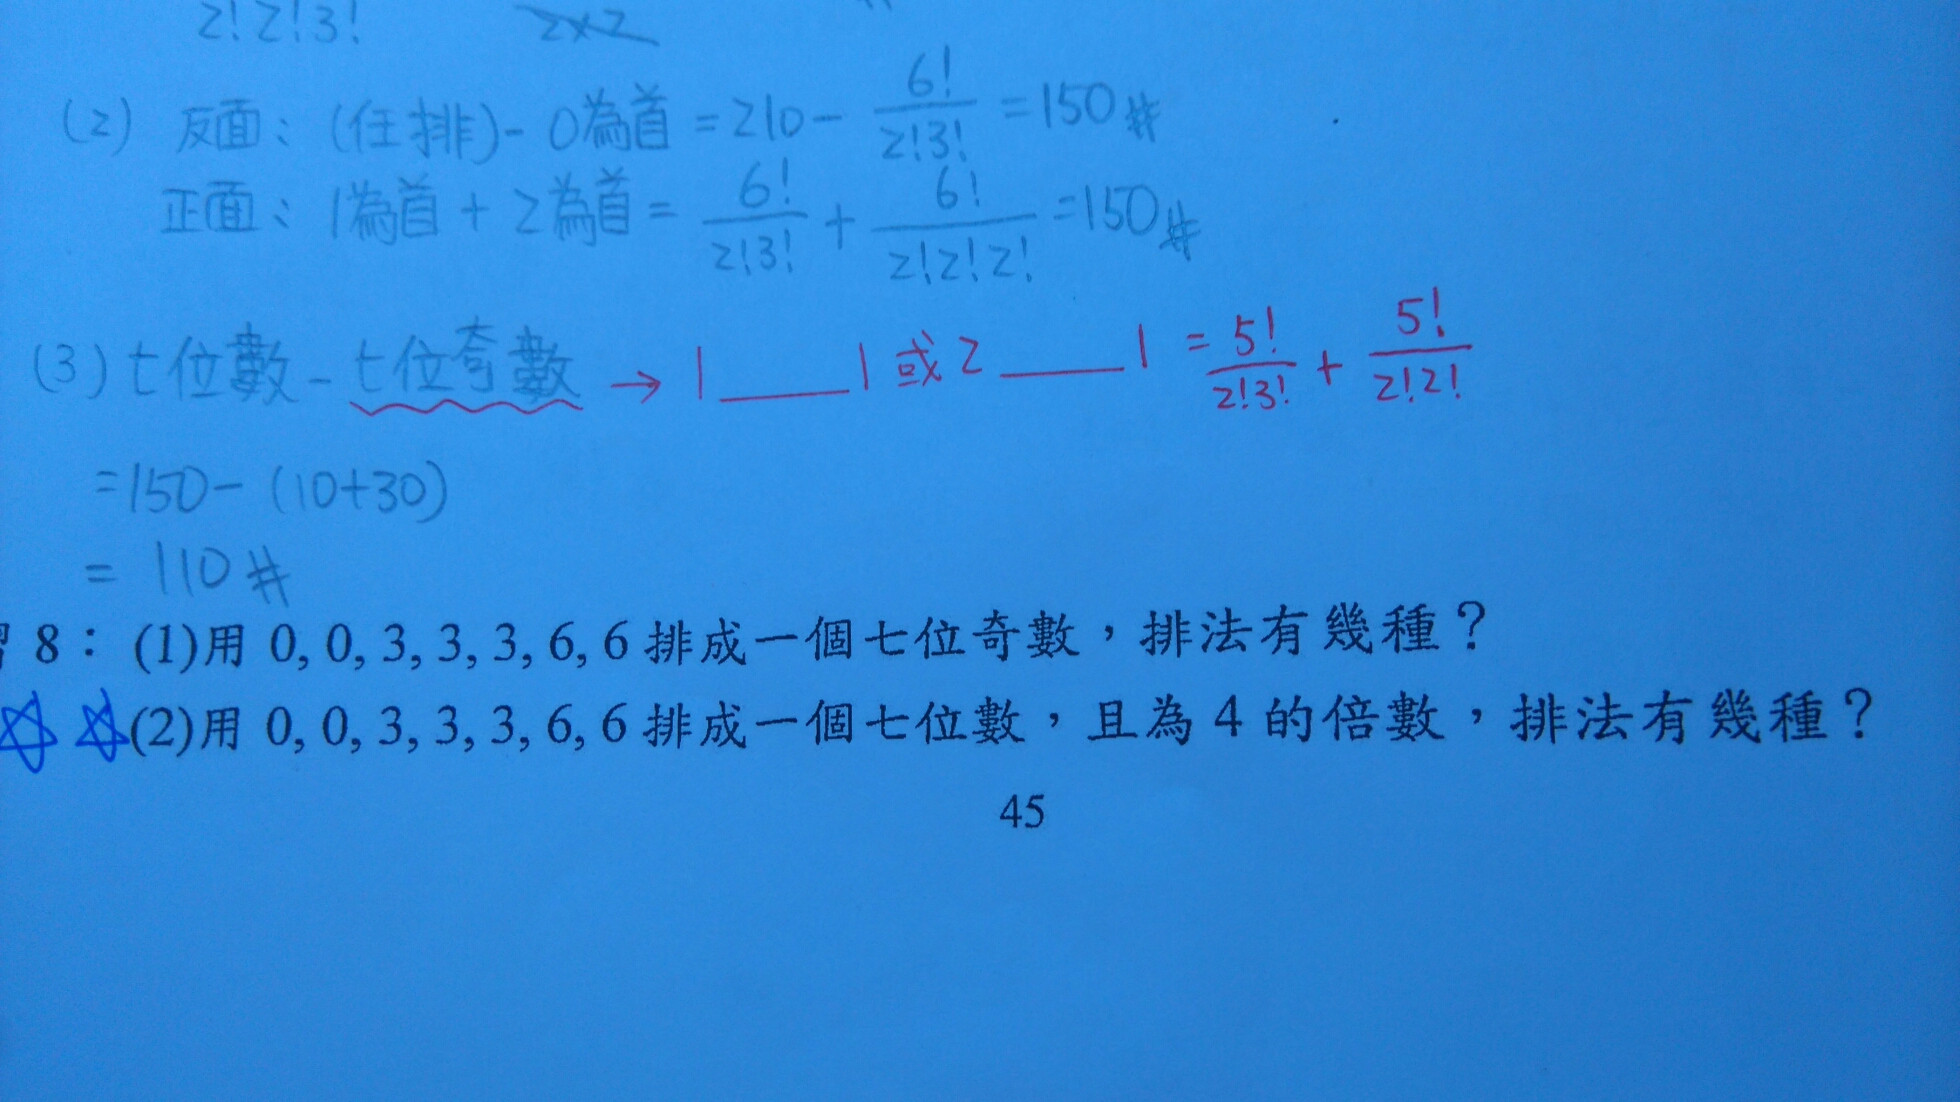 2!2!3! 2×2
(2) 反面：(任排)- 0為首 = 210 - 6!/2!3! = 150 #
正面：1為首 + 2為首 = 6!/2!3! + 6!/2!2!2! = 150 #
(3) 七位數 - 七位奇數 → 1____1 或 2____1 = 5!/2!3! + 5!/2!2!
= 150 - (10+30)
= 110 #
8：(1)用 0, 0, 3, 3, 3, 6, 6 排成一個七位奇數，排法有幾種？
(2)用 0, 0, 3, 3, 3, 6, 6 排成一個七位數，且為 4 的倍數，排法有幾種？
45